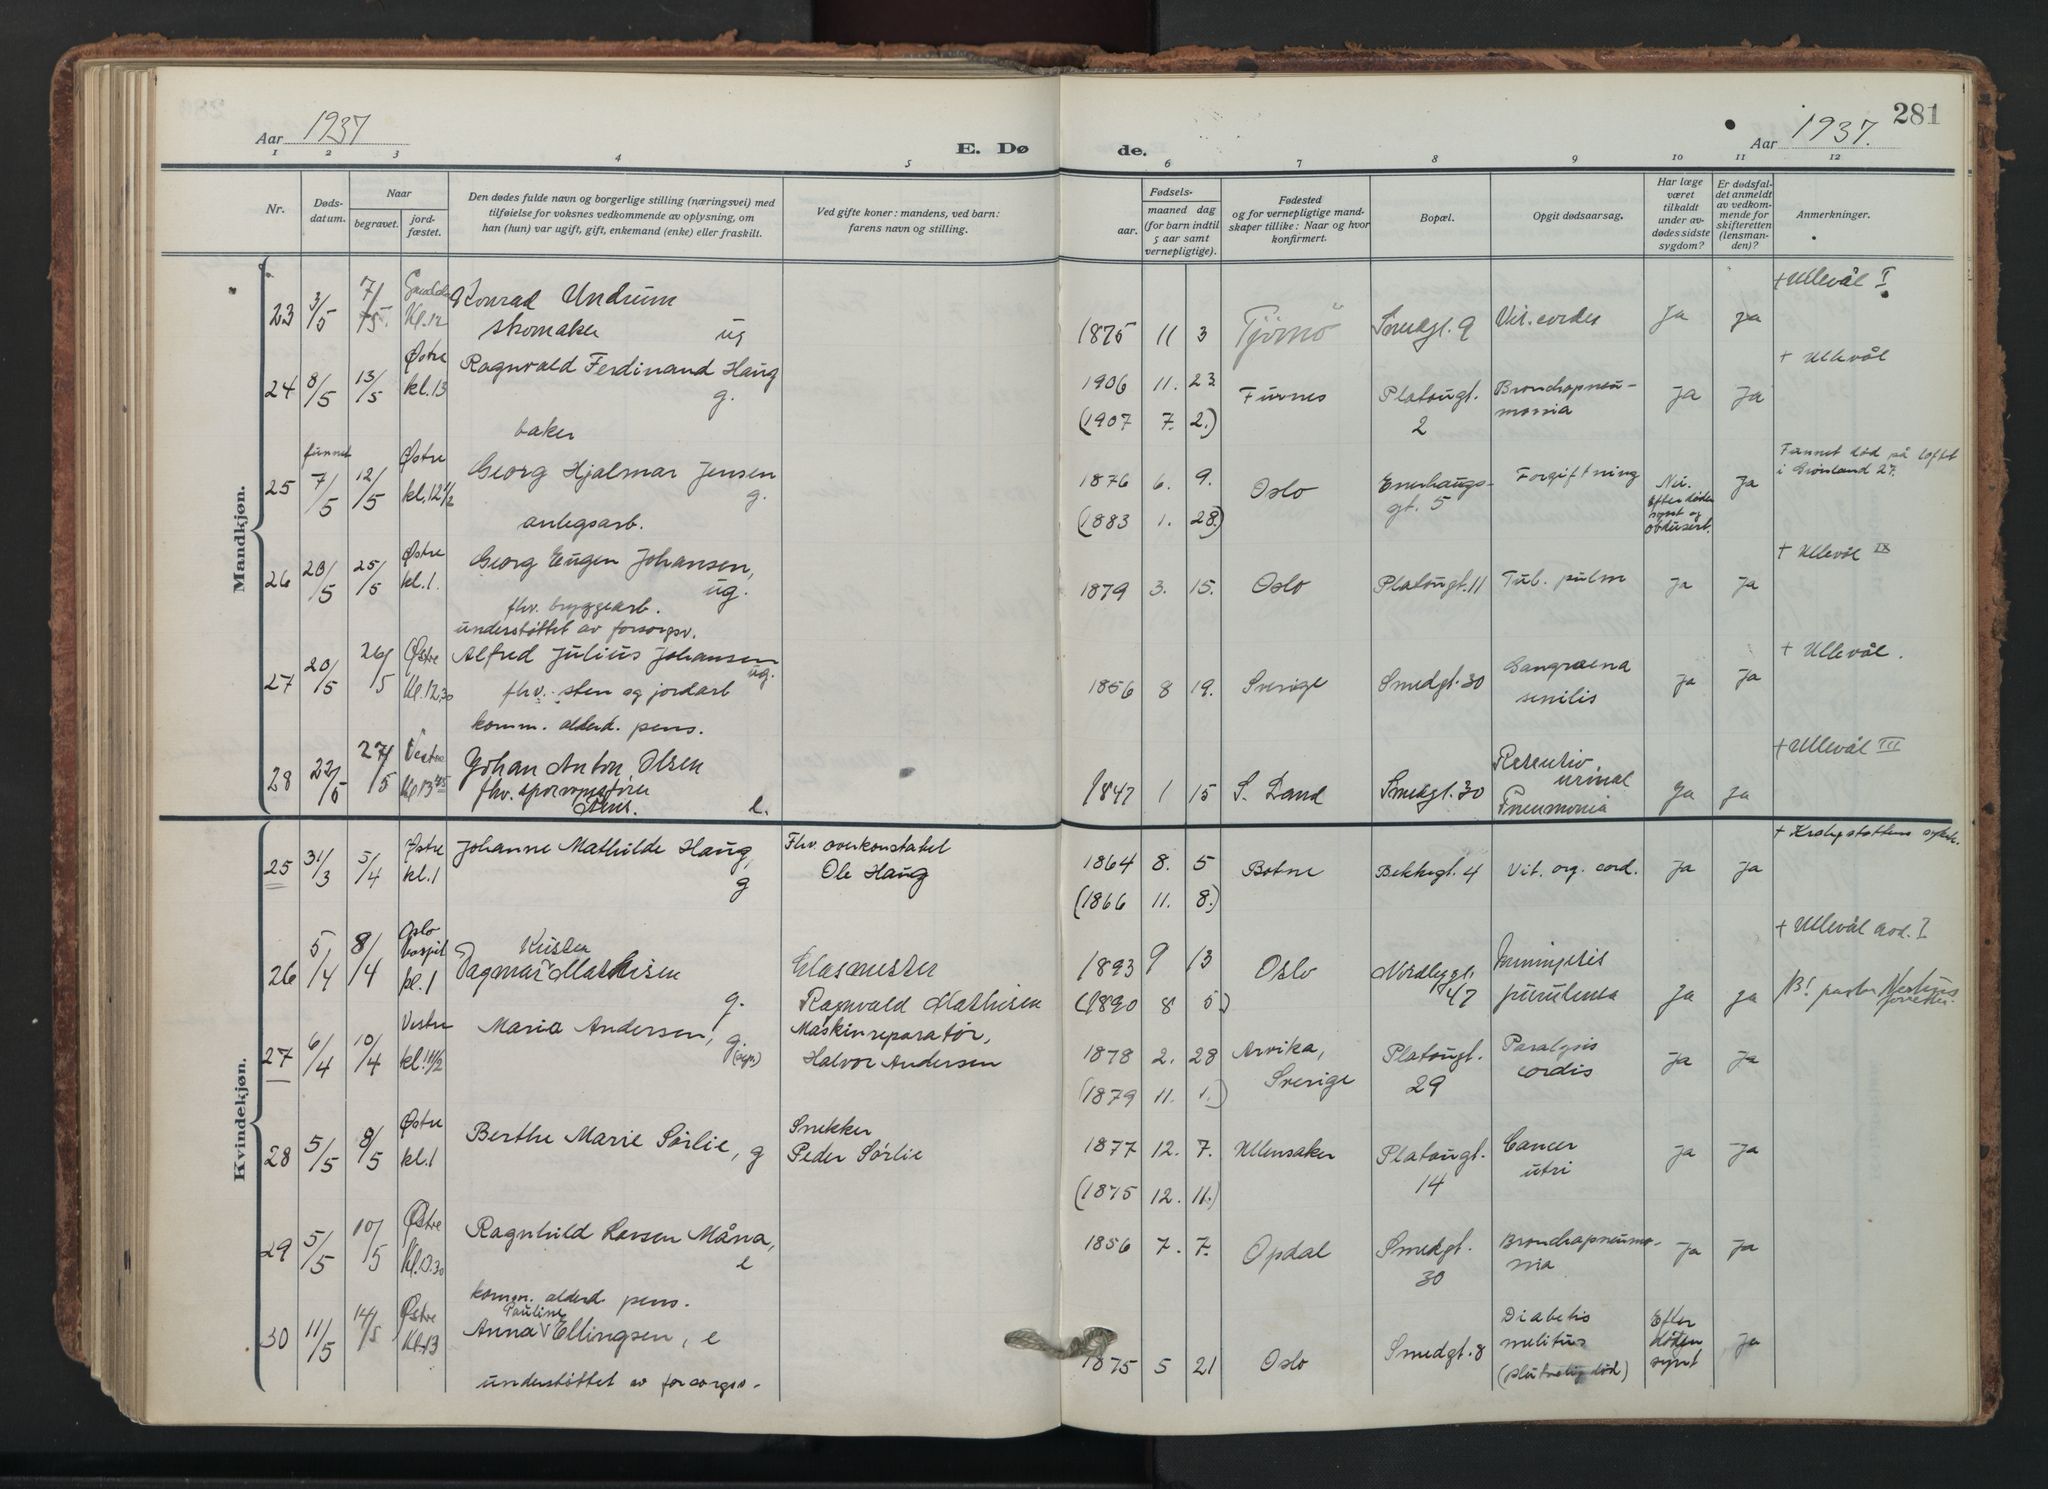 281
Aar 1937
E. Dø
de.
Aar 1937.
1 2 3 4 5 6 7 8 9 10 11 12
Nr.
Døds-
datum.
Naar
begravet.
jord-
fæstet.
Den dødes fulde navn og borgerlige stilling (næringsvei) med
tilføielse for voksnes vedkommende av oplysning, om
han (hun) var ugift, gift, enkemand (enke) eller fraskilt.
Ved gifte koner: mandens, ved barn:
farens navn og stilling.
Fødsels-
aar.
maaned dag
(for barn indtil
5 aar samt
vernepligtige).
Fødested
og for vernepligtige mand-
skaper tillike: Naar og hvor
konfirmert.
Bopæl.
Opgit dødsaarsag.
Har læge
været
tilkaldt
under av-
dødes sidste
sygdom?
Er dødsfal-
det anmeldt
av vedkom-
mende for
skifteretten
(lensman-
den)?
Anmerkninger.
Mandkjøn.
23 3/5 7/5 Kl. 12 Konrad Undrum
skomaker ug
1875 11 3 Tjømø Smedgt. 9 Vit. cordis Ja ja + Ullevål I
24 8/5 13/5 Østre kl. 13 Ragnvald Ferdinand Haug
g.
baker
1906 11. 23. Furnes Platougt. 2 Bronchopneu-
monia Ja Ja + Ullevål
(1907 7. 2.)
25 funnet 7/5 12/5 Østre kl. 12 1/2 Georg Hjalmar Jensen
g.
anlegsarb.
1876 6. 9. Oslo Enerhaugs-
gt. 5 Forgiftning Nei.
Efter døden
synt og
obdusert. Ja Funnet død på loftet
i Grønland 27.
(1883 1. 28.)
26 20/5 25/5 Østre kl. 1. Georg Eugen Johansen,
ug.
fhv. bryggearb.
understøttet av forsorgsv.
1879 3. 15. Oslo Platougt. 11 Tub. pulm Ja Ja + Ullevål IX
27 20/5 26/5 Østre Kl. 12.30 Alfred Julius Johansen
ug.
fhv. sten og jordarb
komm. alderd. pens.
1856 8 19. Sverige Smedgt. 30 Gangræna
senilis Ja Ja + Ullevål.
28 22/5 27/5 Vestre Kl 13 45 Johan Anton Olsen
fhv.
e.
1847 1 15 S. Land Smedgt. 30 urinal
Pneumonia Ja Ja + Ullevål III
Kvindekjøn.
25 31/3 5/4 Østre kl. 1 Johanne Mathilde Haug,
g
Fhv. overkonstabel
Ole Haug
1864 8. 5 Botne Bekkegt. 4 Vit. org. cord. Ja Ja
(1866 11. 8.)
26 5/4 8/4 Oslo hospit kl. 1 Dagmar Mathisen
g.
Glasmester
Ragnvald Mathisen
1893 9 13 Oslo Nordbygt.
47 Meningitis
purulenta Ja ja + Ullevål avd. I
(1890 8 5)
27 6/4 10/4 Vestre kl. 11 1/2 Maria Andersen,
g.
Maskinreparatør,
Halvor Andersen
1878 2. 28 Arvika,
Sverige Platougt.
29 Paralysis
cordis Ja Ja
(1879 11. 1.)
28 5/5 8/5 Østre kl. 1 Berthe Marie Sørlie, g
Snekker
Peder Sørlie
1877 12. 7. Ullensaker Platougt.
14 Cancer
utri Ja Ja
(1875 12. 11.)
29 5/5 10/5 Østre Kl. 13.30 Ragnhild Larsen Måna,
e
komm. alderd. pens.
1856 7. 7. Opdal Smedgt.
30 Bronchopneumo-
nia Ja Ja
30 11/5 14/5 Østre Kl. 13 Anna Pauline Ellingsen, e
understøttet av forsorgsv.
1875 5 21 Oslo Smedgt. 8 Diabetis
melitus
Efter
døden
synt Ja